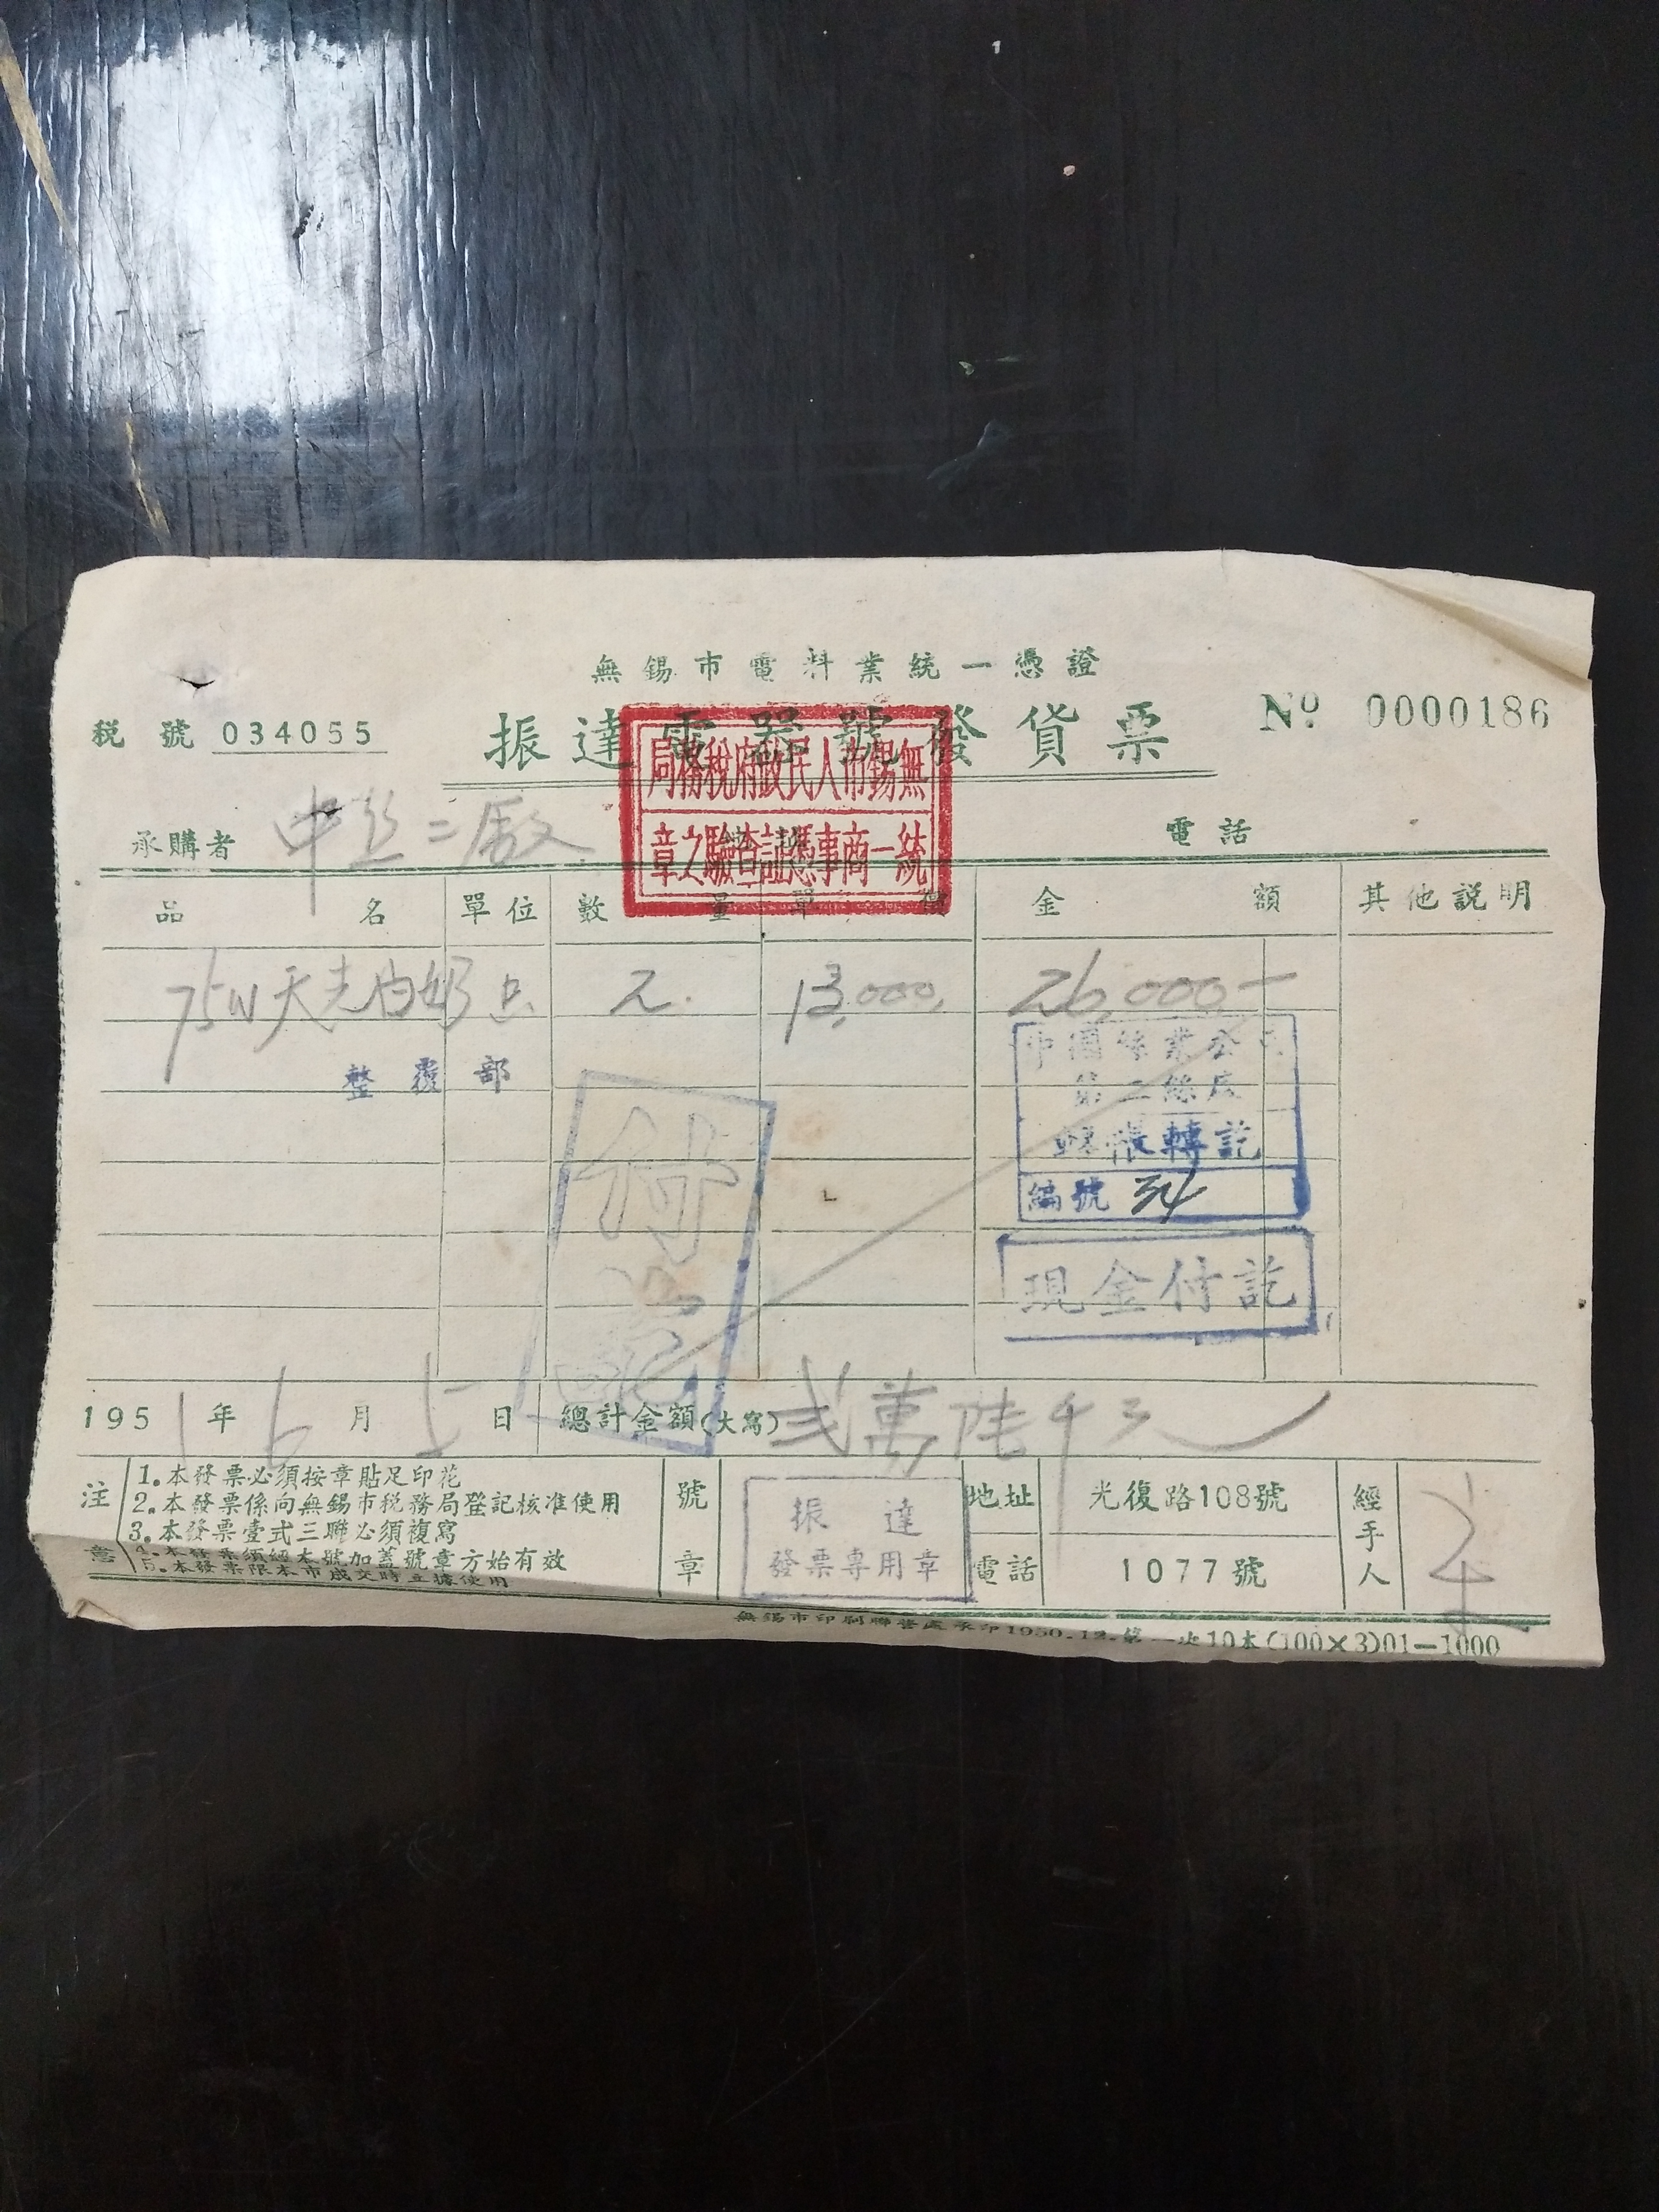 無錫市電料業統一憑證
税號 034055
振達電器號發貨票
Nº 0000186
無錫市人民政府稅務局
統一商事憑証查驗之章
承購者 中丝二廠
電話
品名 單位 數量 單價 金額 其他説明
75W天光内奶 只 2. 13,000, 26,000-
整覆部
中國絲業公司
第二絲厂
轉訖
編號 34
付訖
現金付訖
1951年6月5日 總計金額(大寫) 弍萬陆千元
注意
1.本發票必須按章貼足印花
2.本發票係向無錫市税務局登記核准使用
3.本發票壹式三聯必須複寫
4.本發票須經本號加蓋號章方始有效
5.本發票限本市成交時立據使用
號章
振達
發票專用章
地址 光復路108號
電話 1077號
經手人
無錫市印刷聯營處承印1950.12.第一次10本(100×3)01—1000